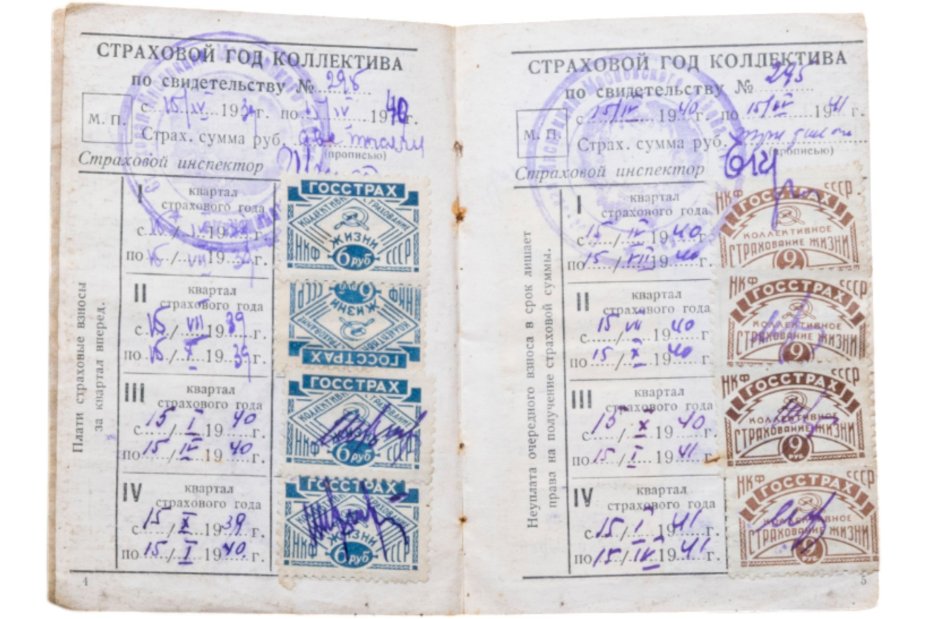 СТРАХОВОЙ ГОД КОЛЛЕКТИВА
по свидетельству № 295
М. П.
с 15/IV 1939 по 15/IV 1940
Страх. сумма руб. две тысячи
(прописью)
Страховой инспектор
Плати страховые взносы
за квартал вперед.
I
квартал
страхового года
с 15/IV 1939 г.
по 15/VII 1939 г.
II
квартал
страхового года
с 15/VII 1939 г.
по 15/X 1939 г.
III
квартал
страхового года
с 15/I 1940 г.
по 15/IV 1940 г.
IV
квартал
страхового года
с 15/X 1939 г.
по 15/I 1940 г.
ГОССТРАХ
КОЛЛЕКТИВНОЕ СТРАХОВАНИЕ
ЖИЗНИ
НКФ 6 РУБ СССР
ГОССТРАХ
КОЛЛЕКТИВНОЕ СТРАХОВАНИЕ
ЖИЗНИ
НКФ 6 РУБ СССР
ГОССТРАХ
ЖИЗНИ
НКФ 6 РУБ СССР
ГОССТРАХ
НКФ 6 РУБ СССР
4
СТРАХОВОЙ ГОД КОЛЛЕКТИВА
по свидетельству № 295
М. П.
с 15/IV 1940 по 15/IV 1941
Страх. сумма руб. три
(прописью)
Страховой инспектор
Неуплата очередного взноса в срок лишает
права на получение страховой суммы.
I
квартал
страхового года
с 15/IV 1940 г.
по 15/VII 1940 г.
II
квартал
страхового года
с 15/VII 1940 г.
по 15/X 1940 г.
III
квартал
страхового года
с 15/X 1940 г.
по 15/I 1941 г.
IV
квартал
страхового года
с 15/I 1941 г.
по 15/IV 1941 г.
НКФ СССР
ГОССТРАХ
КОЛЛЕКТИВНОЕ
СТРАХОВАНИЕ ЖИЗНИ
9
НКФ СССР
ГОССТРАХ
КОЛЛЕКТИВНОЕ
СТРАХОВАНИЕ ЖИЗНИ
9
НКФ СССР
ГОССТРАХ
КОЛЛЕКТИВНОЕ
СТРАХОВАНИЕ ЖИЗНИ
9
НКФ СССР
ГОССТРАХ
КОЛЛЕКТИВНОЕ
СТРАХОВАНИЕ ЖИЗНИ
9
5